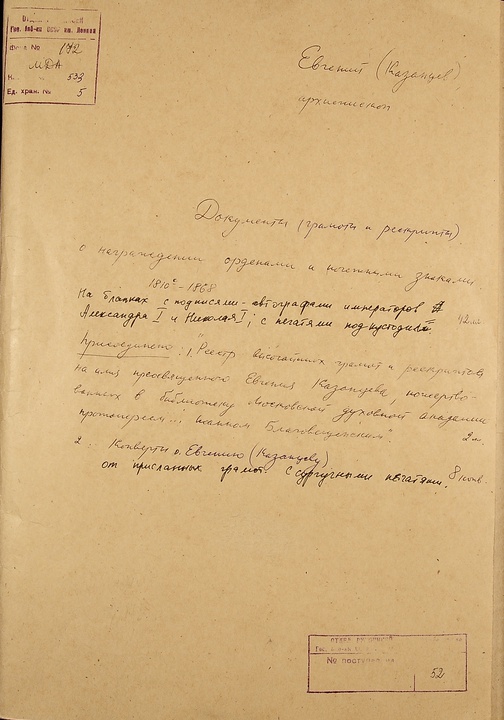 Гос. Биб-ки СССР им. Ленина
Фонд № 172
МДА
533
Ед. хран. № 5
Евгений (Казанцев)
архиепископ
Документы (грамоты и рескрипты)
о награждении орденами и почетными знаками.
1810-1868
На бланках с подписями-автографами императоров
Александра I и Николая I; с печатями под кустодией 42 лл
Присоединено: 1, "Реестр высочайших грамот и рескриптов
на имя преосвященного Евгения Казанцева, пожертво-
ванных в библиотеку Московской духовной академии
протоиереем Иоанном Благовещенским". 2 л.
2. Конверты о. Евгению (Казанцеву)
от присланных грамот. С сургучными печатями. 8 конв.
отдел рукописей
№ поступления
52